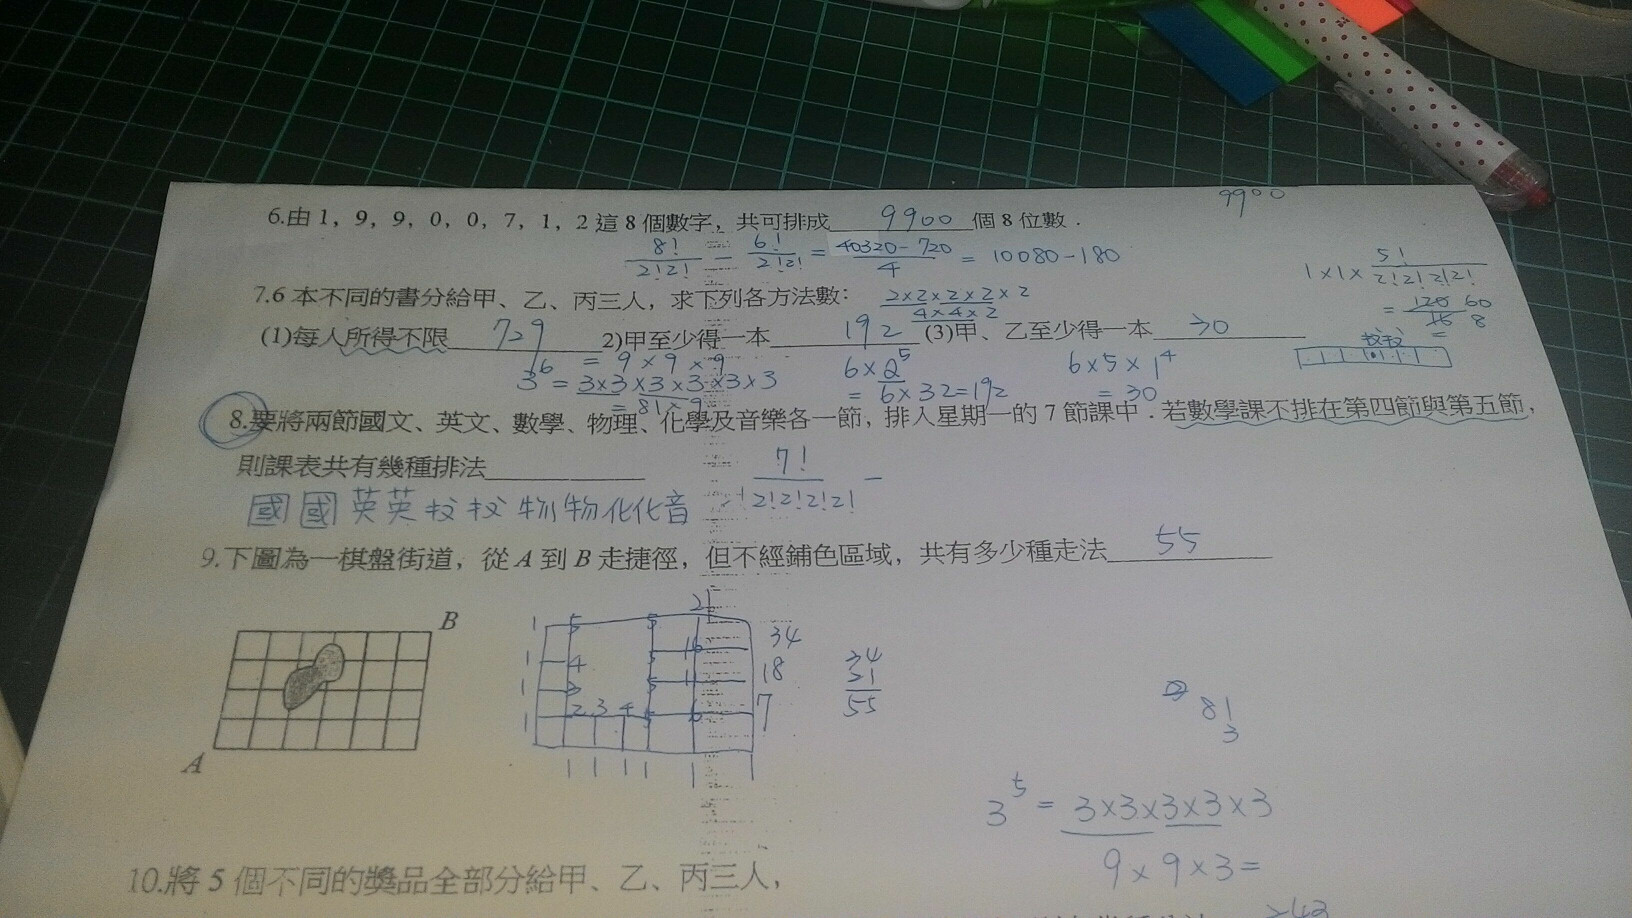 9900
6.由 1，9，9，0，0，7，1，2 這 8 個數字，共可排成 9900 個 8 位數．
8!/2!2! − 6!/2!2! = 40320-720/4 = 10080-180
1×1× 5!/2!2!2!2!
7.6 本不同的書分給甲、乙、丙三人，求下列各方法數：
2×2×2×2×2
4×4×2
= 120/16 60/8
(1)每人所得不限 729 2)甲至少得一本 192 (3)甲、乙至少得一本 30
= 9×9×9
3^6 = 3×3×3×3×3×3
= 81×9
6×2^5
= 6×32=192
6×5×1^4
= 30
8.要將兩節國文、英文、數學、物理、化學及音樂各一節，排入星期一的 7 節課中．若數學課不排在第四節與第五節，
則課表共有幾種排法
7!/2!2!2!2! −
國 國 英 英 数 数 物 物 化 化 音
9.下圖為一棋盤街道，從 A 到 B 走捷徑，但不經鋪色區域，共有多少種走法 55
B
A
1 5 5 21
1 4 5 16 34
1 3 5 11 18
1 2 3 4 5 6 7
1 1 1 1 1 1
34
21
55
81
3
3^5 = 3×3×3×3×3
9×9×3=
10.將 5 個不同的獎品全部分給甲、乙、丙三人，
243